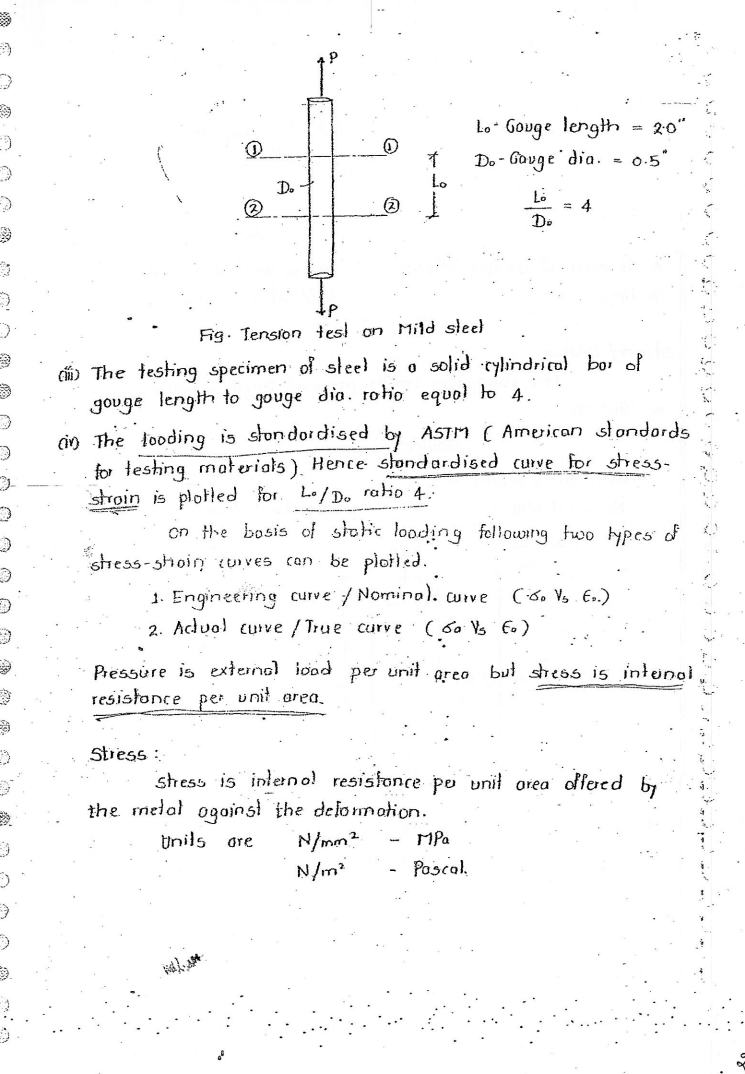 P
① ①
Lo - Gouge length = 2.0"
Do - Gouge dia. = 0.5"
Do
Lo
Lo/Do = 4
② ②
P
Fig. Tension test on Mild steel
(iii) The testing specimen of steel is a solid cylindrical bar of
gouge length to gouge dia. ratio equal to 4.
(iv) The loading is standardised by ASTM ( American standards
for testing materials ). Hence standardised curve for stress-
strain is plotted for Lo/Do ratio 4.
On the basis of static loading following two types of
stress-strain curves can be plotted.
1. Engineering curve / Nominal. curve ( σo Vs ϵo.)
2. Actual curve / True curve ( σa Vs ϵa )
Pressure is external load per unit area but stress is internal
resistance per unit area.
Stress :
Stress is internal resistance per unit area offered by
the metal against the deformation.
Units are N/mm² - MPa
N/m² - Pascal.